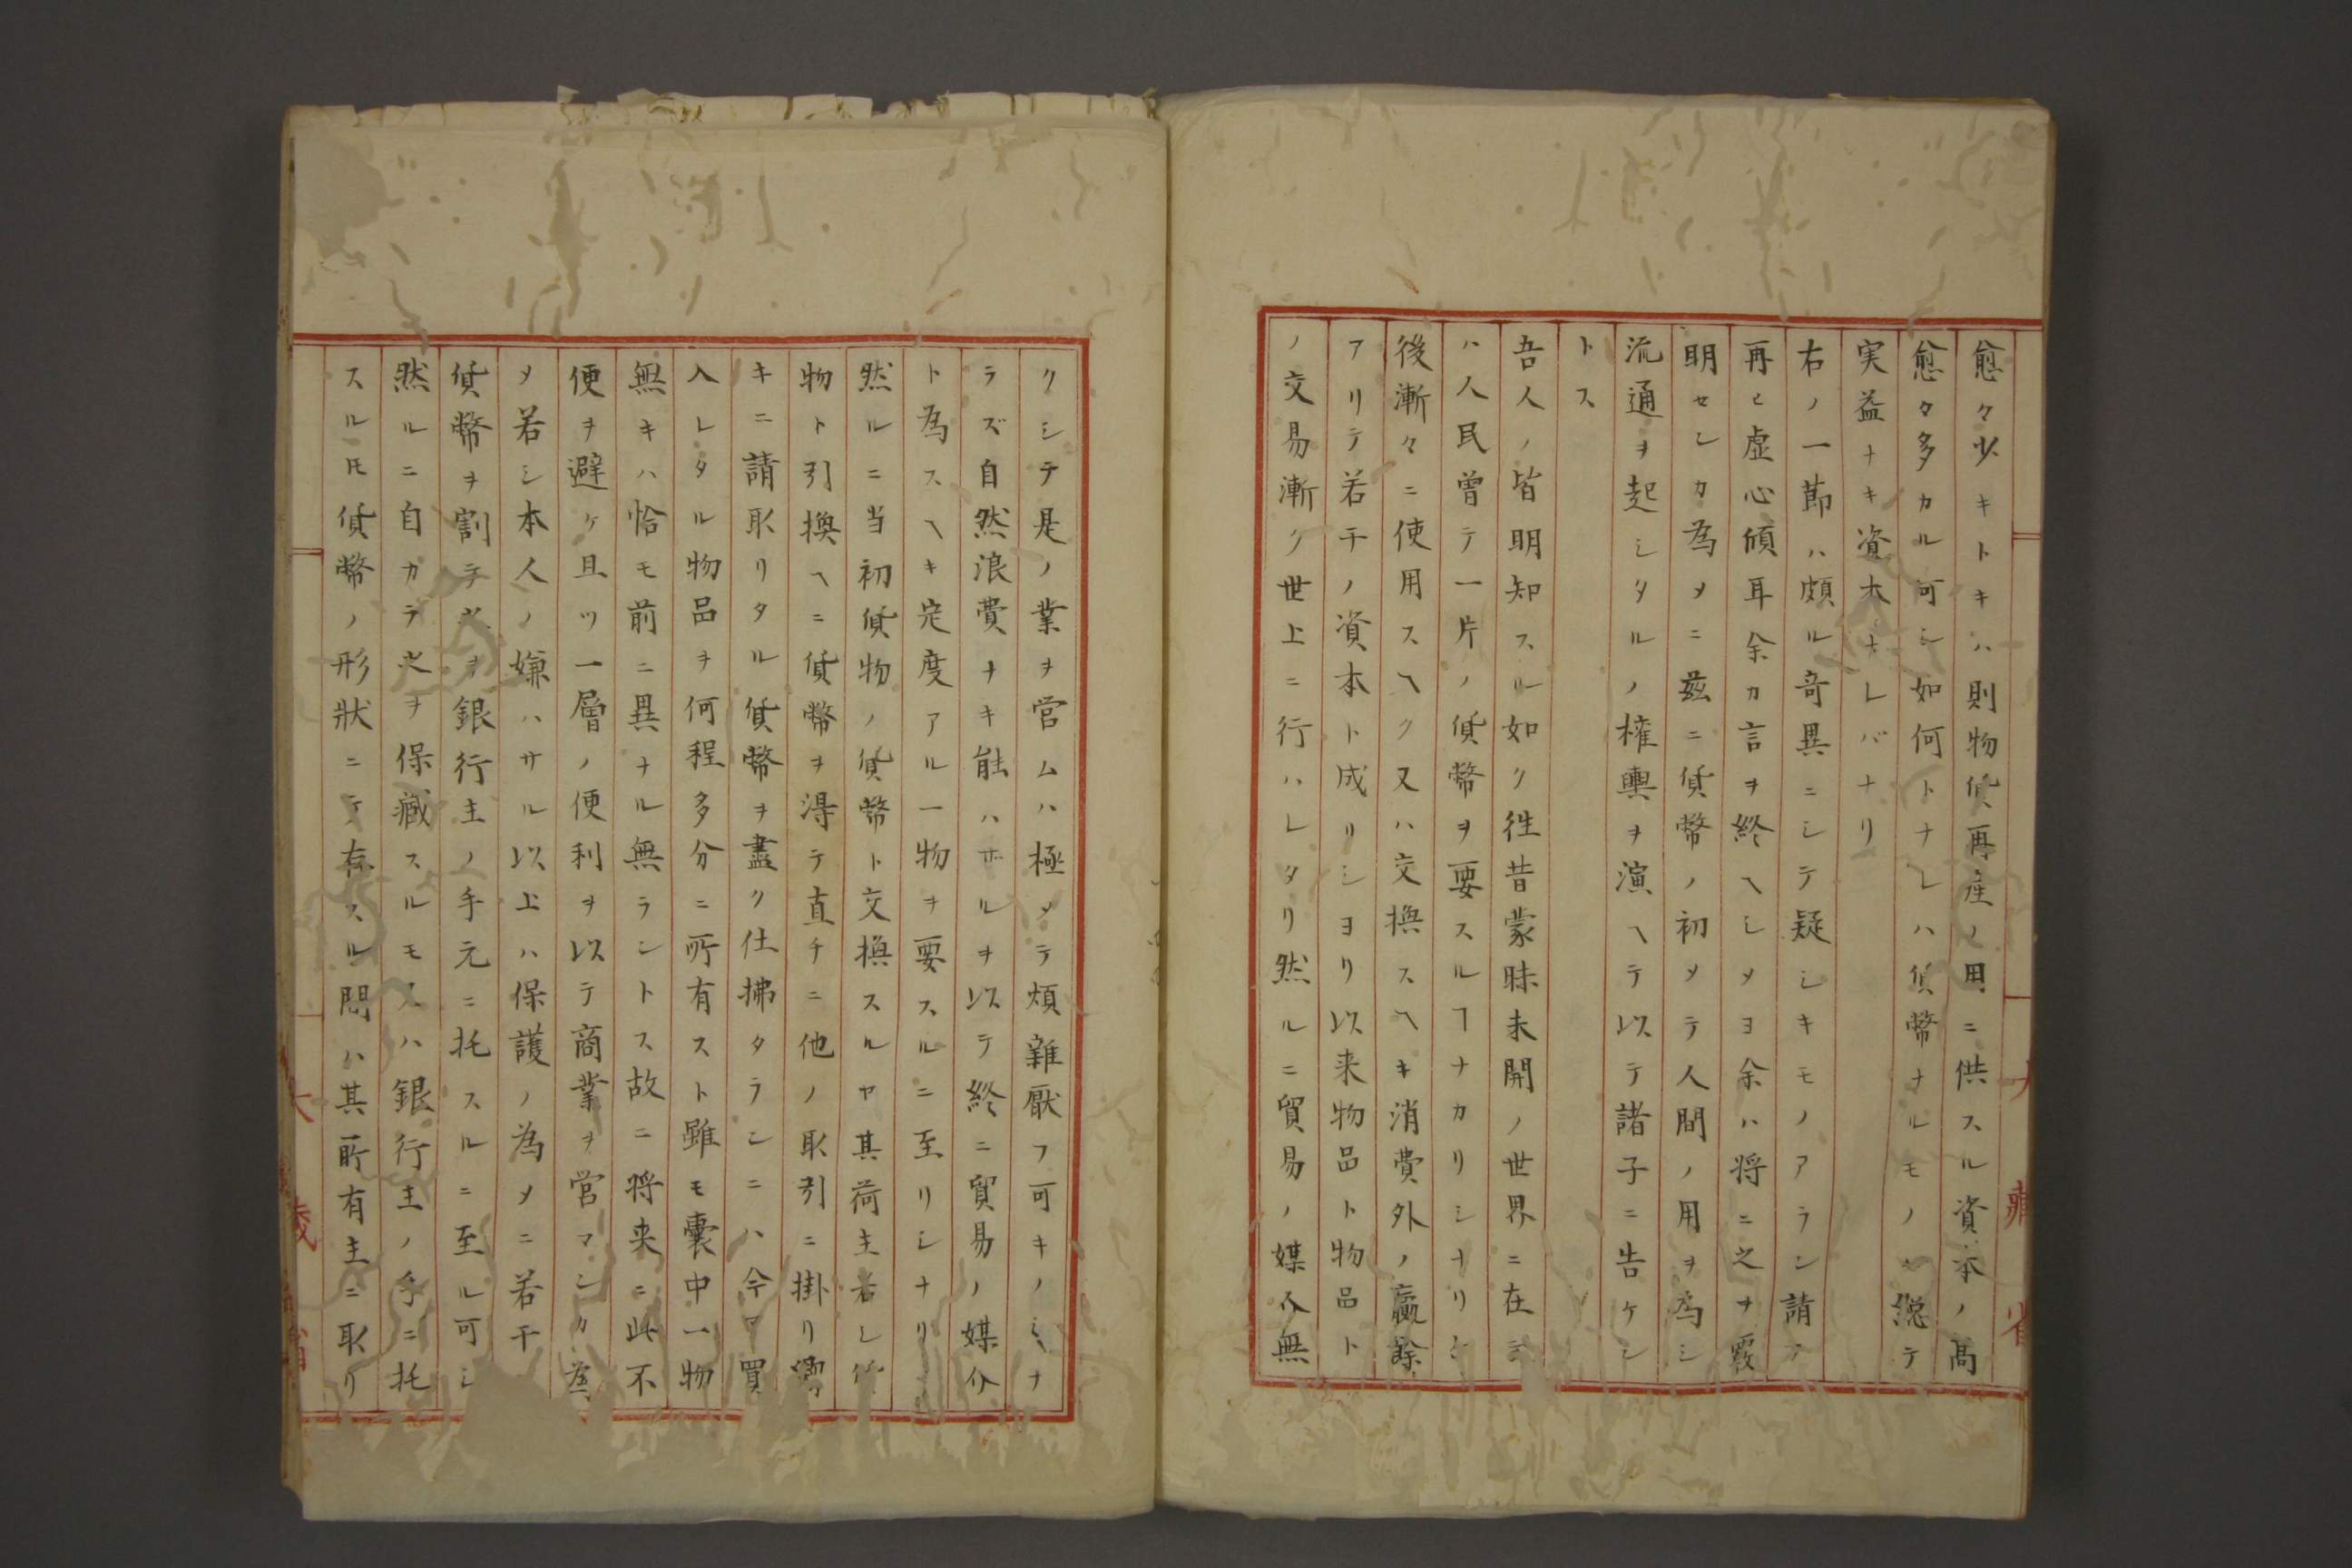 愈々少キトキハ則物貨再産ノ用ニ供スル資本ノ高
愈々多カル可シ如何トナレハ貨幣ナルモノハ総テ
実益ナキ資本ナレバナリ
右ノ一節ハ頗ル奇異ニシテ疑シキモノアラン請フ
再ヒ虚心傾耳余カ言ヲ終ヘシメヨ余ハ将ニ之ヲ覈
明センカ為メニ茲ニ貨幣ノ初メテ人間ノ用ヲ為シ
流通ヲ起シタルノ権輿ヲ演ヘテ以テ諸子ニ告ケン
トス
吾人ノ皆明知スル如ク徃昔蒙昧未開ノ世界ニ在テ
ハ人民曽テ一片ノ貨幣ヲ要スルヿナカリシナリ
後漸々ニ使用スヘク又ハ交換スヘキ消費外ノ贏餘
アリテ若干ノ資本ト成リシヨリ以来物品ト物品ト
ノ交易漸ク世上ニ行ハレタリ然ルニ貿易ノ媒介無
クシテ是ノ業ヲ営ムハ極メテ煩雑厭フ可キノミナ
ラズ自然浪費ナキ能ハザルヲ以テ終ニ貿易ノ媒介
ト為スヘキ定度アル一物ヲ要スルニ至リシナリ
然ルニ当初貨物ノ貨幣ト交換スルヤ其荷主若シ貨
物ト引換ヘニ貨幣ヲ得テ直チニ他ノ取引ニ掛リ
キニ請取リタル貨幣ヲ盡ク仕拂タランニハ今マ買
入レタル物品ヲ何程多分ニ所有スト雖モ嚢中一物
無キハ恰モ前ニ異ナル無ラントス故ニ将来ニ此不
便ヲ避ケ且ツ一層ノ便利ヲ以テ商業ヲ営マンカ為
メ若シ本人ノ嫌ハサル以上ハ保護ノ為メニ若干
貨幣ヲ割テ之ヲ銀行主ノ手元ニ托スルニ至ル可シ
然ルニ自カラ之ヲ保藏スルモ又ハ銀行主ノ手ニ托
スル𪜈貨幣ノ形状ニテ存スル間ハ其所有主ニ取リ
大藏省
大藏省